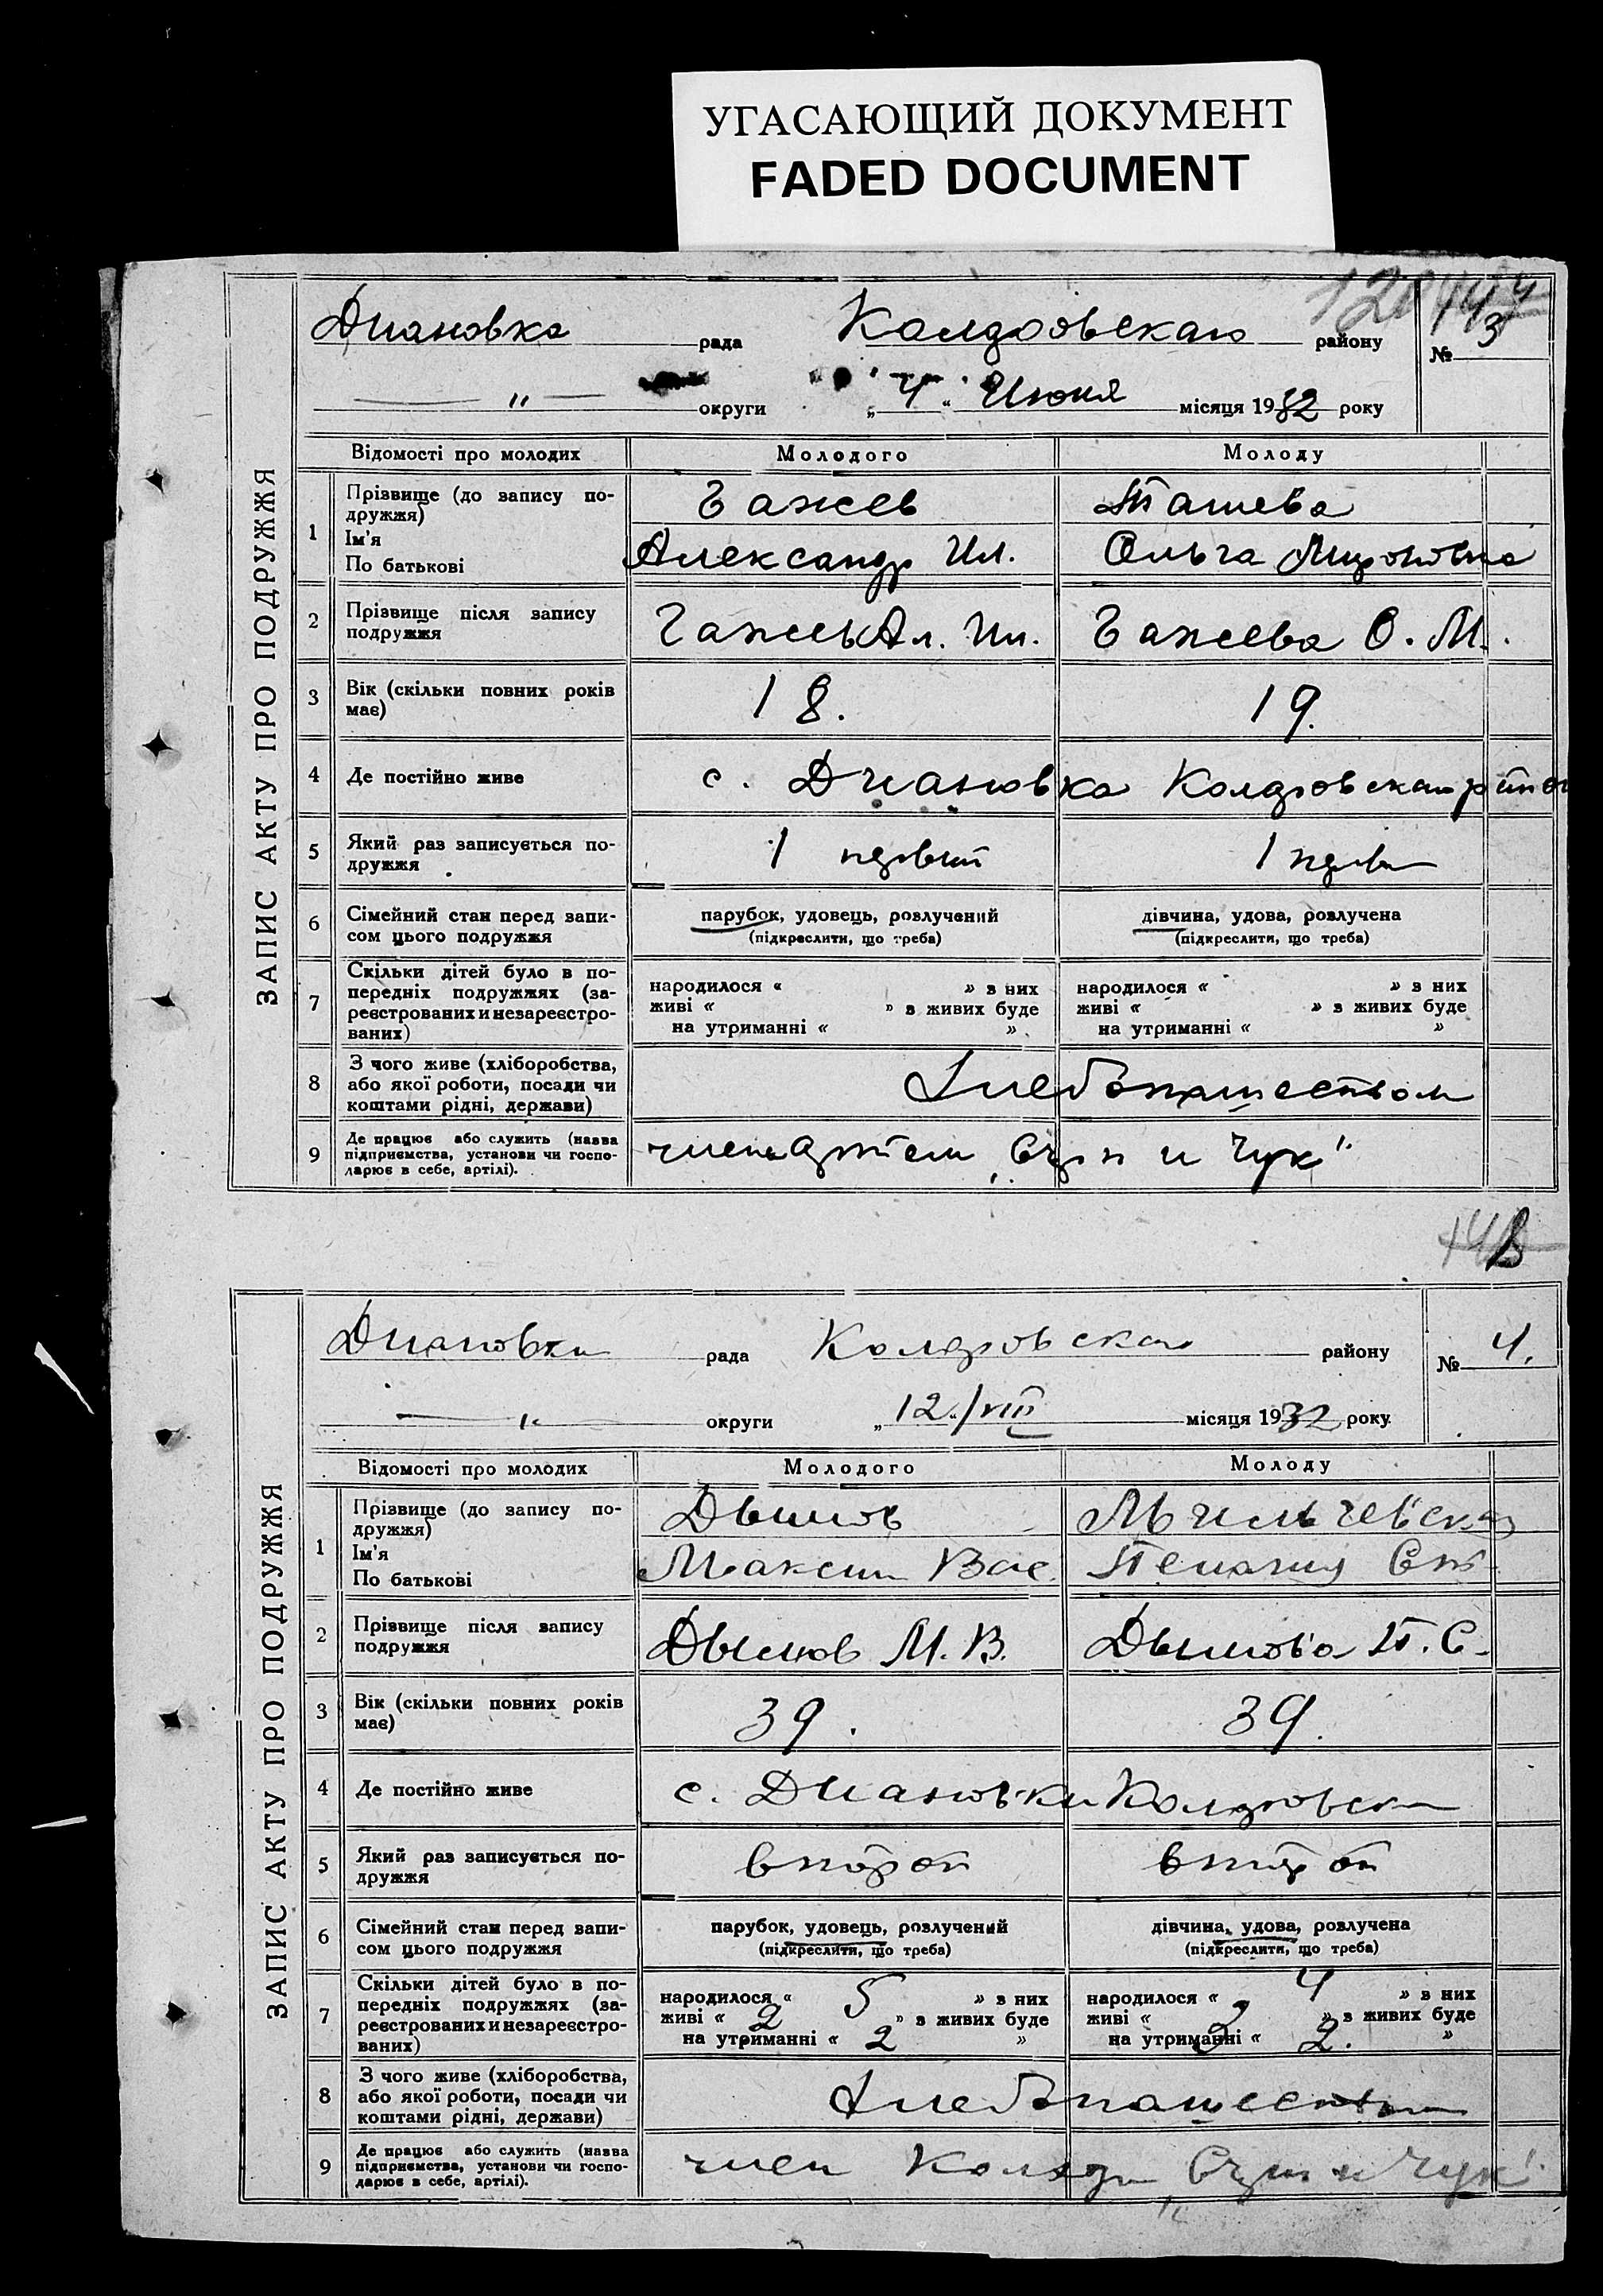 УГАСАЮЩИЙ ДОКУМЕНТ
FADED DOCUMENT
ЗАПИС АКТУ ПРО ПОДРУЖЖЯ
Диановка рада Колдровскаго району № 3
— " — округи „4“ Июня місяця 1932 року
Відомості про молодих Молодого Молоду
1 Прізвище (до запису по-
дружжя)
Ім'я
По батькові
Гажев Ташева
Александр Ил. Ольга Мироновна
2 Прізвище після запису
подружжя
Гажев Ал. Ил. Гажева О. М.
3 Вік (скільки повних років
має)
18. 19.
4 Де постійно живе с. Диановка
5 Який раз записується по-
дружжя
1 первый 1 перв
6 Сімейний стан перед запи-
сом цього подружжя
парубок, удовець, розлучений дівчина, удова, розлучена
(підкреслити, що треба) (підкреслити, що треба)
7 Скільки дітей було в по-
передніх подружжях (за-
реєстрованих и незареєстро-
ваних)
народилося « » з них народилося « » з них
живі « » з живих буде живі « » з живих буде
на утриманні « » на утриманні « »
8 З чого живе (хліборобства,
або якої роботи, посади чи
коштами рідні, держави)
Хлебопашеством
9 Де працює або служить (назва
підприємства, установи чи госпо-
дарює в себе, артілі).
и Чук"
ЗАПИС АКТУ ПРО ПОДРУЖЖЯ
Диановка рада району № 4.
— " — округи „12/VIII місяця 1932 року
Відомості про молодих Молодого Молоду
1 Прізвище (до запису по-
дружжя)
Ім'я
По батькові
Дымов
Максим Вас. Пелагия Ст.
2 Прізвище після запису
подружжя
Дымов М. В. Дымова П. С.
3 Вік (скільки повних років
має)
39. 39.
4 Де постійно живе с. Диановки
5 Який раз записується по-
дружжя
второй второй
6 Сімейний стан перед запи-
сом цього подружжя
парубок, удовець, розлучений дівчина, удова, розлучена
(підкреслити, що треба) (підкреслити, що треба)
7 Скільки дітей було в по-
передніх подружжях (за-
реєстрованих и незареєстро-
ваних)
народилося « 5 » з них народилося « 4 » з них
живі « 2 » з живих буде живі « 2 » з живих буде
на утриманні « 2 » на утриманні « 2. »
8 З чого живе (хліборобства,
або якої роботи, посади чи
коштами рідні, держави)
Хлебопашеством
9 Де працює або служить (назва
підприємства, установи чи госпо-
дарює в себе, артілі).
член и Чук"